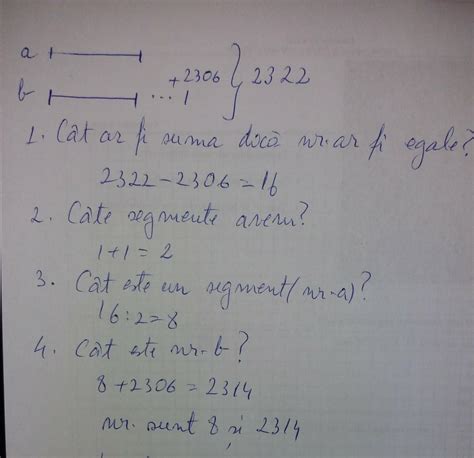 a
+2306 } 2322
b ... 1
1. Cât ar fi suma dacă nr. ar fi egale?
2322 - 2306 = 16
2. Câte segmente avem?
1+1 = 2
3. Cât este un segment (nr. a)?
16:2=8
4. Cât este nr. b?
8 + 2306 = 2314
nr. sunt 8 și 2314